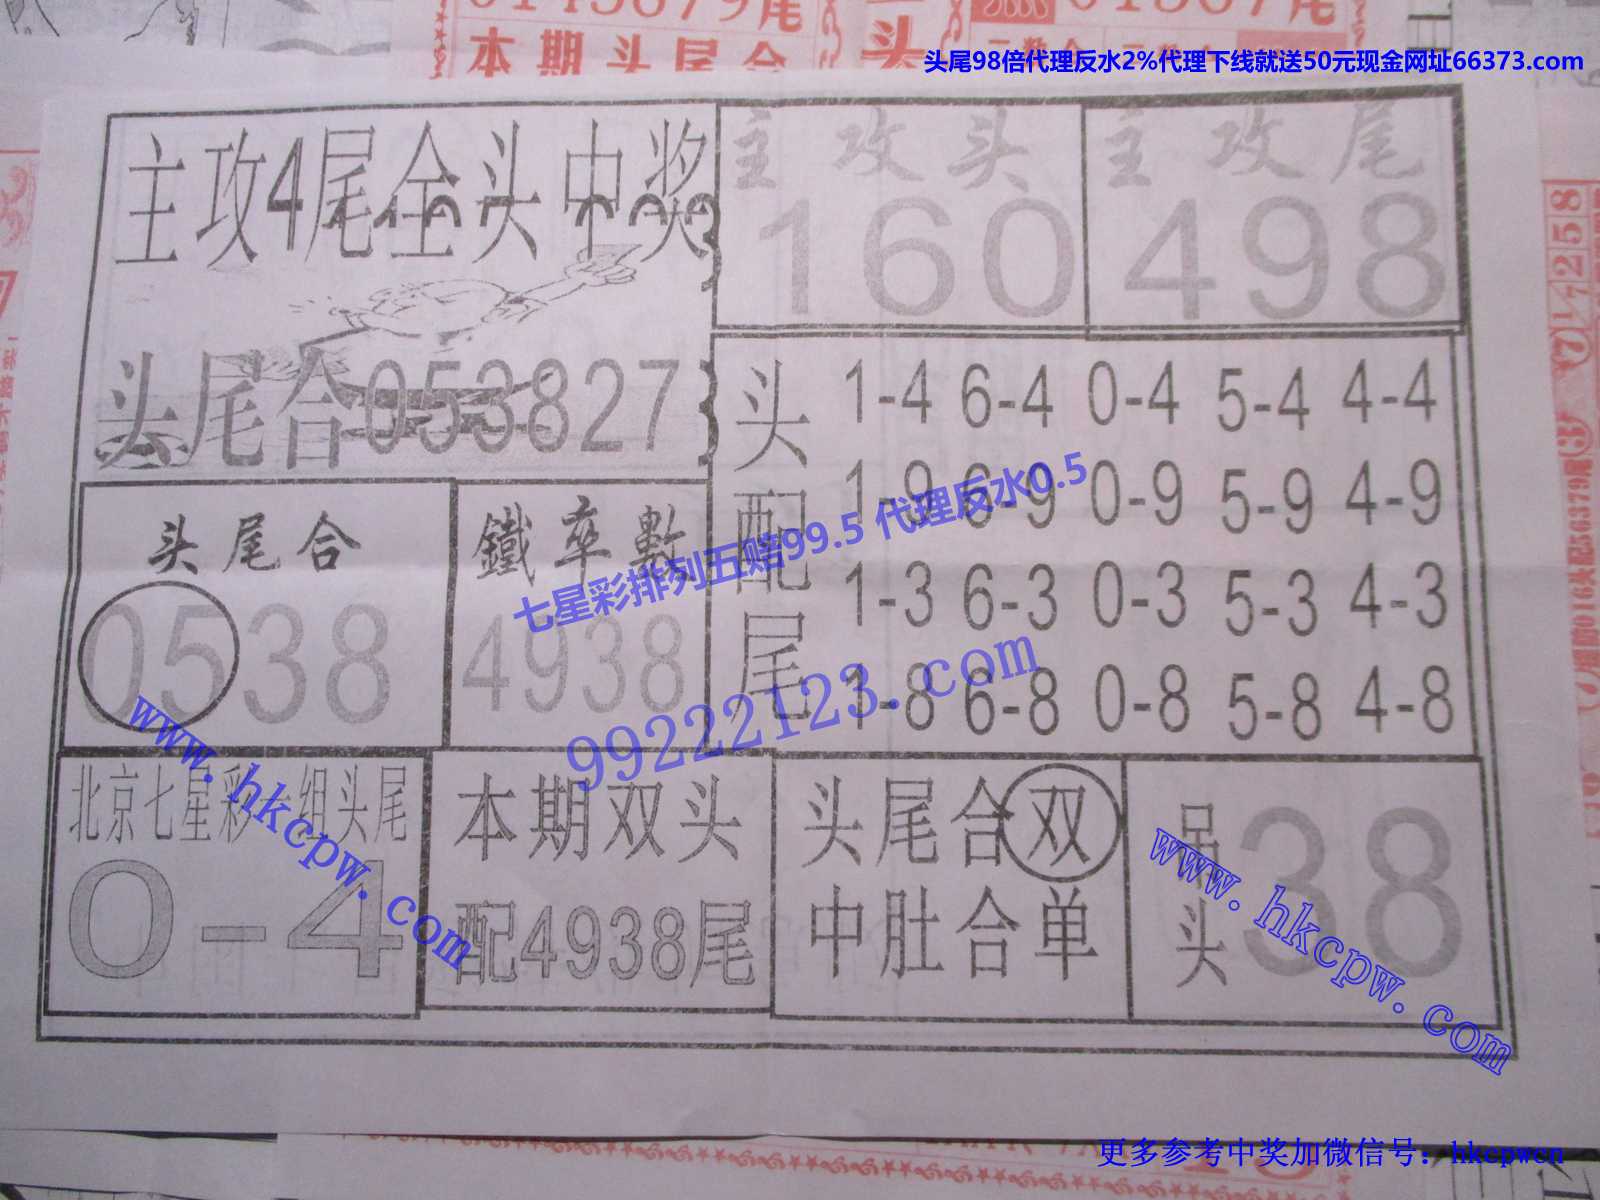 0145679尾
本期头尾合
头
01567尾
头尾98倍代理反水2%代理下线就送50元现金网址66373.com
主攻4尾全头中奖
头尾合053827
主攻头
160
主攻尾
498
头配尾
1-4 6-4 0-4 5-4 4-4
1-9 6-9 0-9 5-9 4-9
1-3 6-3 0-3 5-3 4-3
1-8 6-8 0-8 5-8 4-8
头尾合
0538
鐵率數
4938
七星彩排列五赔99.5 代理反水0.5
99222123.com
www.hkcpw.com
北京七星彩一组头尾
0-4
本期双头
配4938尾
头尾合双
中肚合单
吊头
38
www.hkcpw.com
更多参考中奖加微信号：hkcpwcn